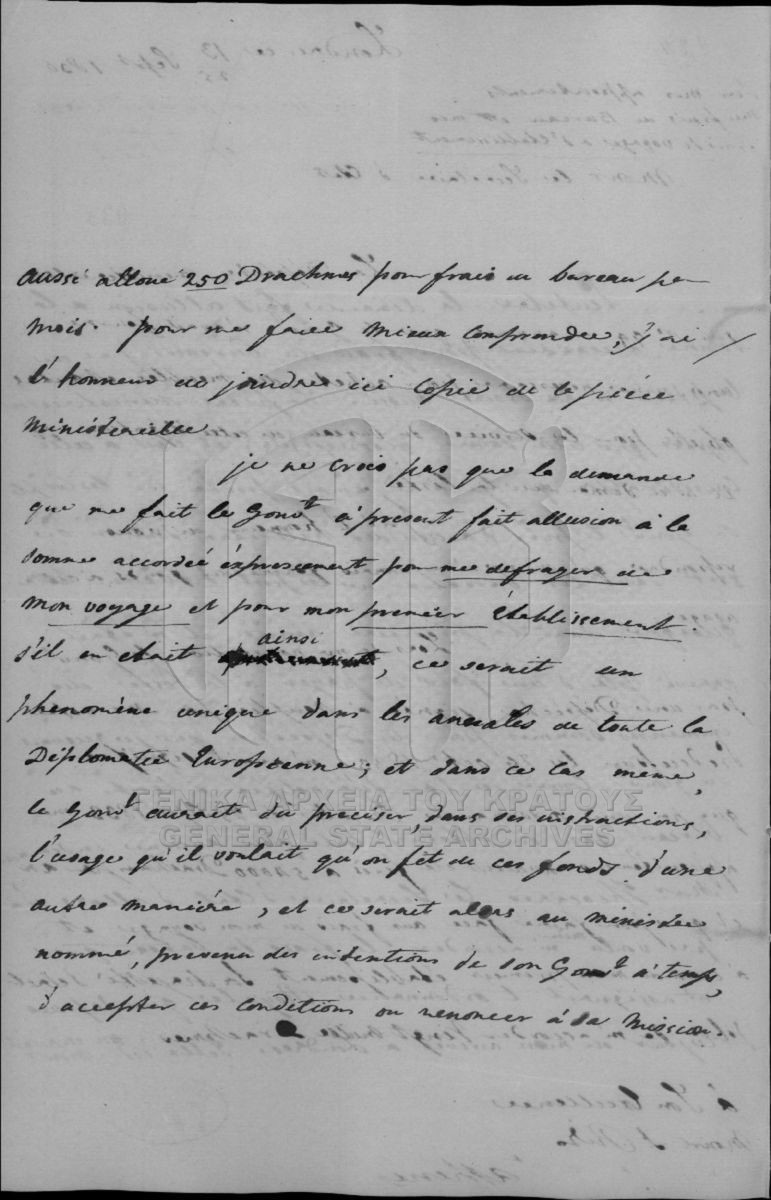 aussi alloué 250 Drachmes pour frais de bureau par
mois. pour me faire mieux comprendre, j'ai
l'honneur de joindre ici Copie de la pièce
ministerielle
je ne crois pas que la demande
que me fait le Gouvt à présent fait allusion à la
somme accordée expressement pour me defrayer de
mon voyage et pour mon premier établissement.
s'il en était ainsi, ce serait un
phenomène unique dans les annales de toute la
Diplomatie Européenne; et dans ce cas même,
le Gouvt aurait dû preciser, dans ses instructions,
l'usage qu'il voulait qu'on fêt de ces fonds d'une
autre manière, et ce serait alors au ministre
nommé, prevenu des intentions de son Gouvt à temps,
d'accepter ces conditions ou renoncer à sa mission.
ΓΕΝΙΚΑ ΑΡΧΕΙΑ ΤΟΥ ΚΡΑΤΟΥΣ
GENERAL STATE ARCHIVES